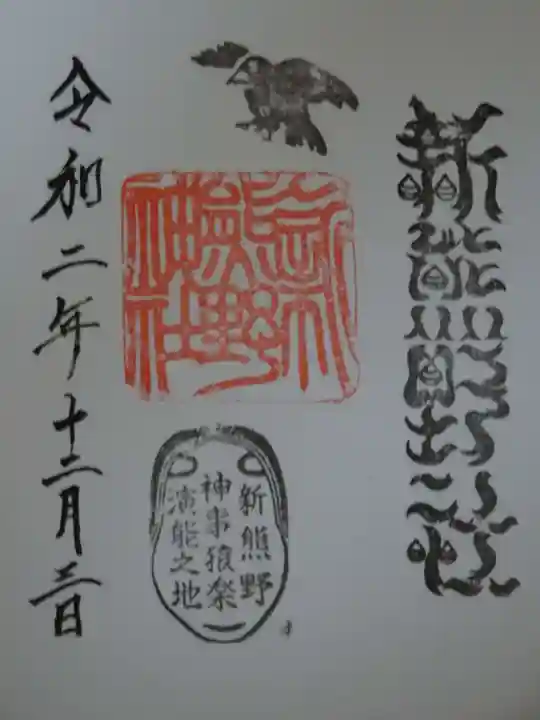 新熊野社
新熊野神社
新熊野
神事猿楽
演能之地
令和二年十二月三日